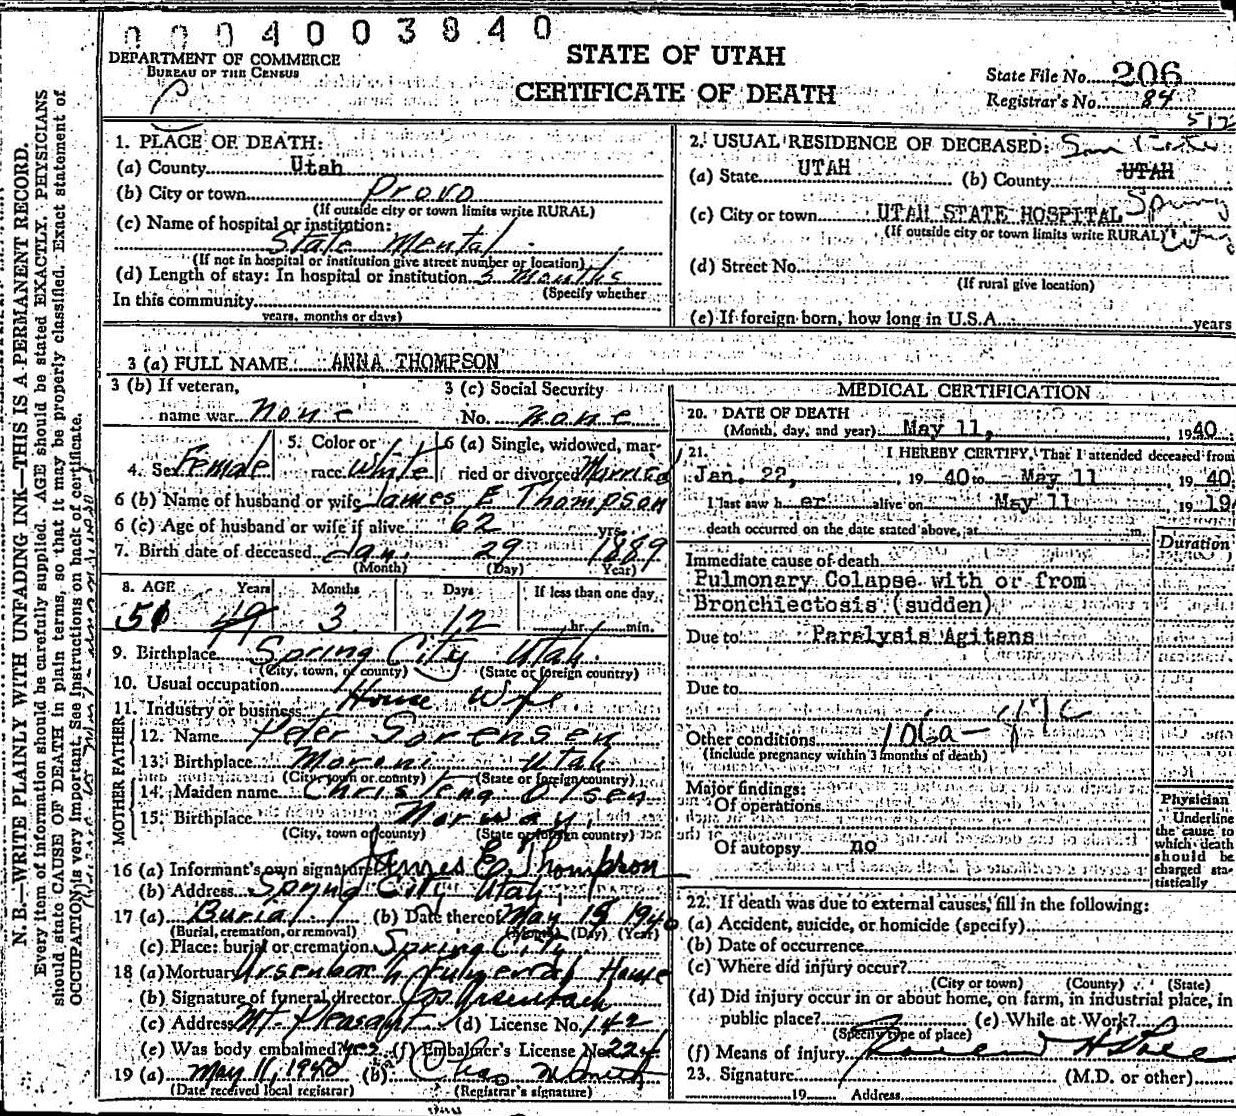 0004003840
DEPARTMENT OF COMMERCE
BUREAU OF THE CENSUS
STATE OF UTAH
CERTIFICATE OF DEATH
State File No. 206
Registrar's No. 84
512
N. B.—WRITE PLAINLY WITH UNFADING INK—THIS IS A PERMANENT RECORD.
Every item of information should be carefully supplied. AGE should be stated EXACTLY. PHYSICIANS
should state CAUSE OF DEATH in plain terms, so that it may be properly classified. Exact statement of
OCCUPATION is very important. See instructions on back of certificate.
1. PLACE OF DEATH:
(a) County Utah
(b) City or town Provo
(If outside city or town limits write RURAL)
(c) Name of hospital or institution:
State Mental
(If not in hospital or institution give street number or location)
(d) Length of stay: In hospital or institution 3 Months
(Specify whether
In this community
years, months or days)
2. USUAL RESIDENCE OF DECEASED:
(a) State UTAH (b) County UTAH
(c) City or town UTAH STATE HOSPITAL Spring City
(If outside city or town limits write RURAL)
(d) Street No.
(If rural give location)
(e) If foreign born, how long in U.S.A. years
3 (a) FULL NAME ANNA THOMPSON
3 (b) If veteran, 3 (c) Social Security
name war none No. none
4. Sex Female 5. Color or race White 6 (a) Single, widowed, married or divorced Married
6 (b) Name of husband or wife James E Thompson
6 (c) Age of husband or wife if alive 62 yrs.
7. Birth date of deceased Jan. 29 1889
(Month) (Day) Year)
8. AGE Years Months Days If less than one day
51 49 3 12 hr. min.
9. Birthplace Spring City Utah
(City, town, or county) (State or foreign country)
10. Usual occupation
House Wife
11. Industry or business
FATHER
12. Name Peter Sorensen
13. Birthplace Moroni Utah
(City, town or county) (State or foreign country)
MOTHER
14. Maiden name Christena Olsen
15. Birthplace Norway
(City, town or county) (State or foreign country)
16 (a) Informant's own signature James E Thompson
(b) Address Spring City Utah
17 (a) Burial (b) Date thereof May 15 1940
(Burial, cremation, or removal) (Month) (Day) (Year)
(c) Place: burial or cremation Spring City
18 (a) Mortuary Ursenbach Funerral Home
(b) Signature of funeral director Ursenbach
(c) Address Mt. Pleasant (d) License No. 142
(e) Was body embalmed? yes (f) Embalmer's License No. 224
19 (a) May 11, 1940 (b) Chas
(Date received local registrar) (Registrar's signature)
MEDICAL CERTIFICATION
20. DATE OF DEATH
(Month, day, and year) May 11, 1940
21. I HEREBY CERTIFY, That I attended deceased from
Jan. 22, 1940 to May 11 1940
I last saw her alive on May 11 194
death occurred on the date stated above, at m.
Duration
Immediate cause of death
Pulmonary Colapse with or from
Bronchiectosis (sudden)
Due to Paralysis Agitans
Due to
Other conditions 106a — 117c
(Include pregnancy within 3 months of death)
Major findings:
Of operations
Of autopsy no
Physician
Underline
the cause to
which death
should be
charged sta-
tistically
22. If death was due to external causes, fill in the following:
(a) Accident, suicide, or homicide (specify)
(b) Date of occurrence
(c) Where did injury occur?
(City or town) (County) (State)
(d) Did injury occur in or about home, on farm, in industrial place, in
public place? (e) While at Work?
(Specify type of place)
(f) Means of injury
23. Signature (M.D. or other)
19 Address